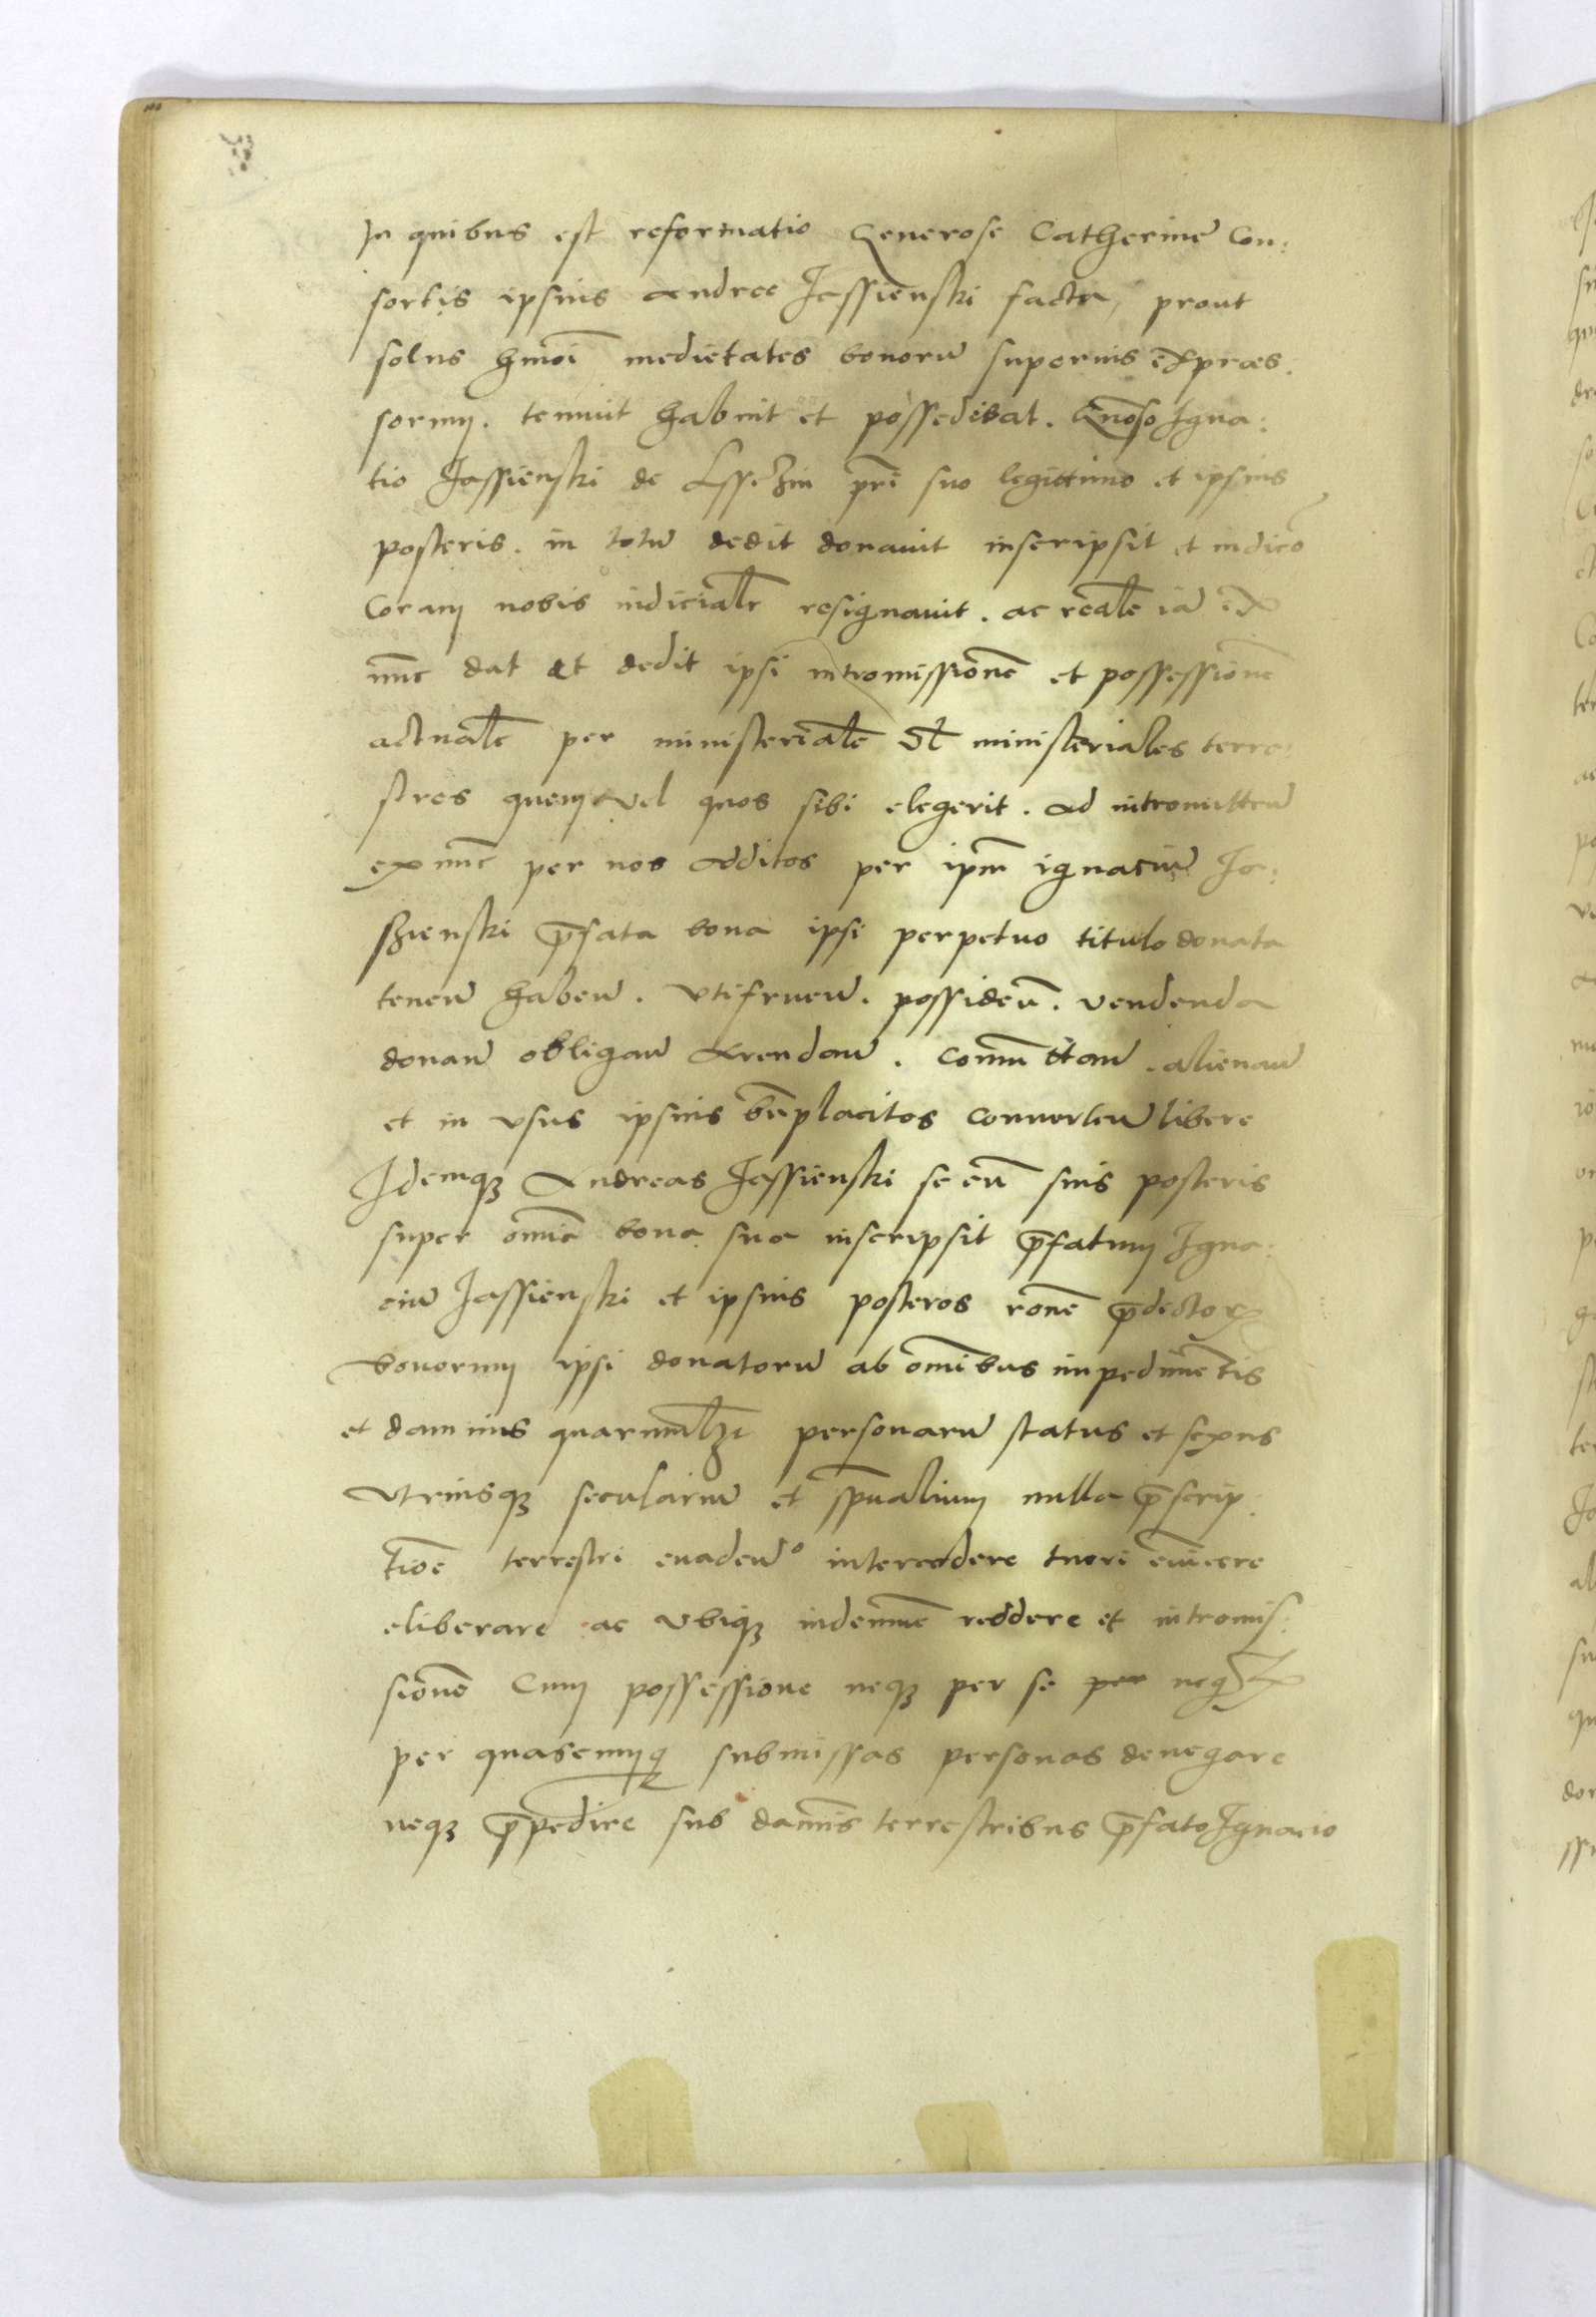 In quibus est reformatio Generose Catherine Con:
sortis ipsius Andree Jassienski facta, prout
solus hmoi medietates bonorū superius expraes.
sorum. tenuit habuit et possedibat. Gnoso Igna:
tio Jassienski de pri suo legittimo et ipsius
posteris. in totū dedit donauit inscripsit et iudico
Coram nobis iudicialr resignauit. ac realr iā ex
nunc dat et dedit ipsi intromissionē et possessionē
actualē per ministerialē vl ministeriales terre:
stres quem vel quos sibi elegerit. Ad intromitten̄
ex nunc per nos additos per ipm ignaciū Ja:
szienski p̄fata bona ipsi perpetuo titulo donata
tenen̄ haben̄. vtifruen̄. possiden̄. vendenda
donan̄ obligan̄ Arendan̄. Commuttan̄. alienan̄
et in vsus ipsius bn̄placitos conuerten̄ libere
Idemq3 Andreas Jassienski se cū suis posteris
super omia bona sua inscripsit p̄fatum Igna:
ciū Jassienski et ipsius posteros ronē p̄dector
bonorum ipsi donatorū ab omibus impedimētis
et damnis personarū status et sexus
vtriusq3 seculariū et sp̄ualium nulla p̄scrip:
tioē terrestri euaden̄o intercedere tueri euicere
eliberare ac vbiq3 indemnē reddere et intromis:
sionē Cum possessione neq3 per se per neq3
per quascumq3 submissas personas denegare
neq3 p̄pedire sub damnis terrestribus p̄fato Ignacio